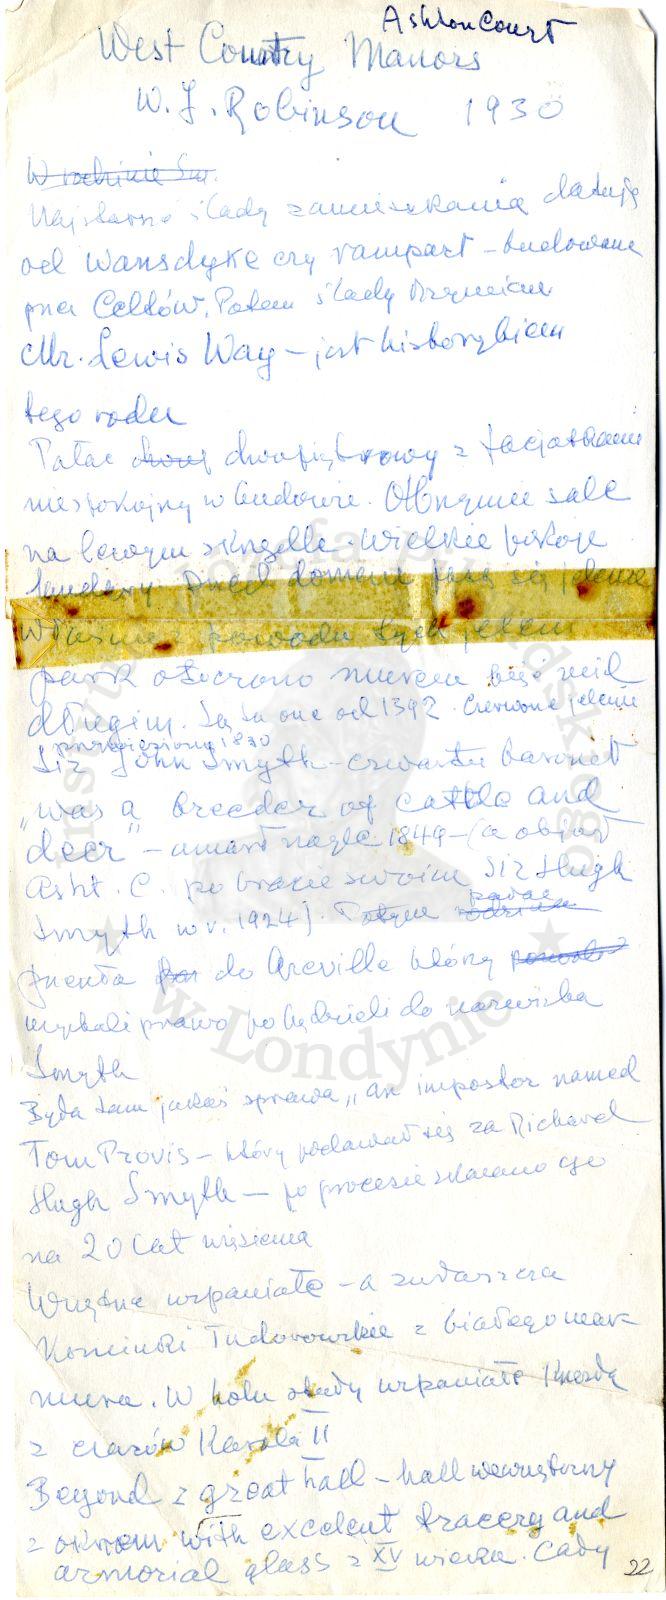 Ashton Court
West Country Manors
W. J. Robinson 1930
W rodzinie Sm.
Najstarsze ślady zamieszkania datują
od Wansdyke czy rampart – budowane
przez Celtów. Potem ślady Rzymian
Mr. Lewis Way – jest historykiem
tego rodu
Pałac dwupiętrowy z facjatkami
niespokojny w budowie. Olbrzymie sale
na lewym skrzydle. Wielkie pokoje
Przed domem pasą się jelenie
Właśnie z powodu tych jeleni
park otoczono murem mil
długim. Są tu one od 1392. Czerwone jelenie
1830
Sir John Smyth – czwarty baronet
„was a breeder of cattle and
deer" – umarł nagle 1849 – (a objął
Asht. C. po bracie swoim Sir Hugh
Smyth w r. 1924). Potym
rodzina
przeszła do Greville który
wyzkali prawo do nazwiska
Smyth
Była tam jakaś sprawa „an impostor named
Tom Provis – który podawał się za Richard
Hugh Smyth – po procesie skazano go
na 20 lat więzienia
Wnętrze wspaniałe – a zwłaszcza
Kominki Tudorowskie z białego mar-
muru. W holu wspaniałe
z czasów Karola II
Beyond z great hall – hall wewnętrzny
z oknem with excelent tracery and
armorial glass z XV wieku. Cały
22
w Londynie